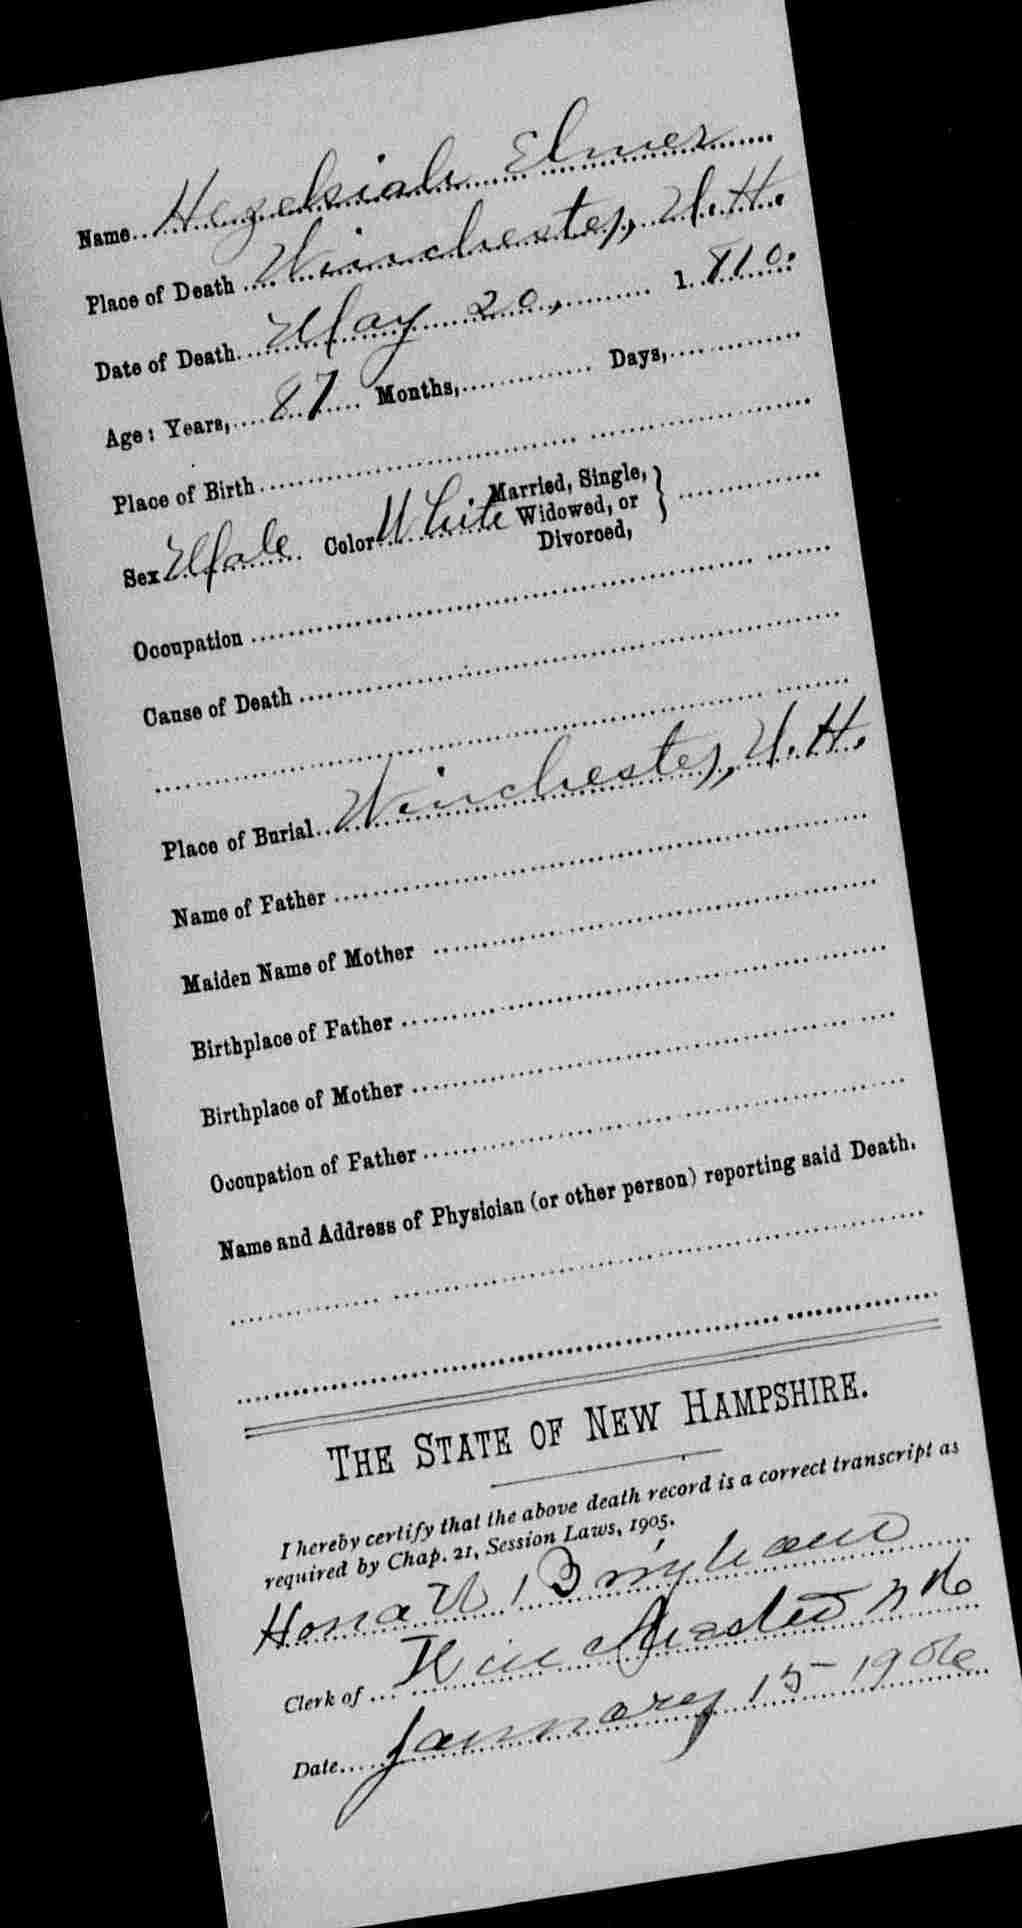 Name Hezekiah Elmer
Place of Death Winchester, N.H.
Date of Death May 20, 1810.
Age: Years, 87 Months, Days,
Place of Birth
Sex Male Color White Married, Single,
Widowed, or
Divorced,
Occupation
Cause of Death
Place of Burial Winchester, N.H.
Name of Father
Maiden Name of Mother
Birthplace of Father
Birthplace of Mother
Occupation of Father
Name and Address of Physician (or other person) reporting said Death.
THE STATE OF NEW HAMPSHIRE.
I hereby certify that the above death record is a correct transcript as
required by Chap. 21, Session Laws, 1905.
Bingham
Clerk of Winchester N H
Date January 15 1906